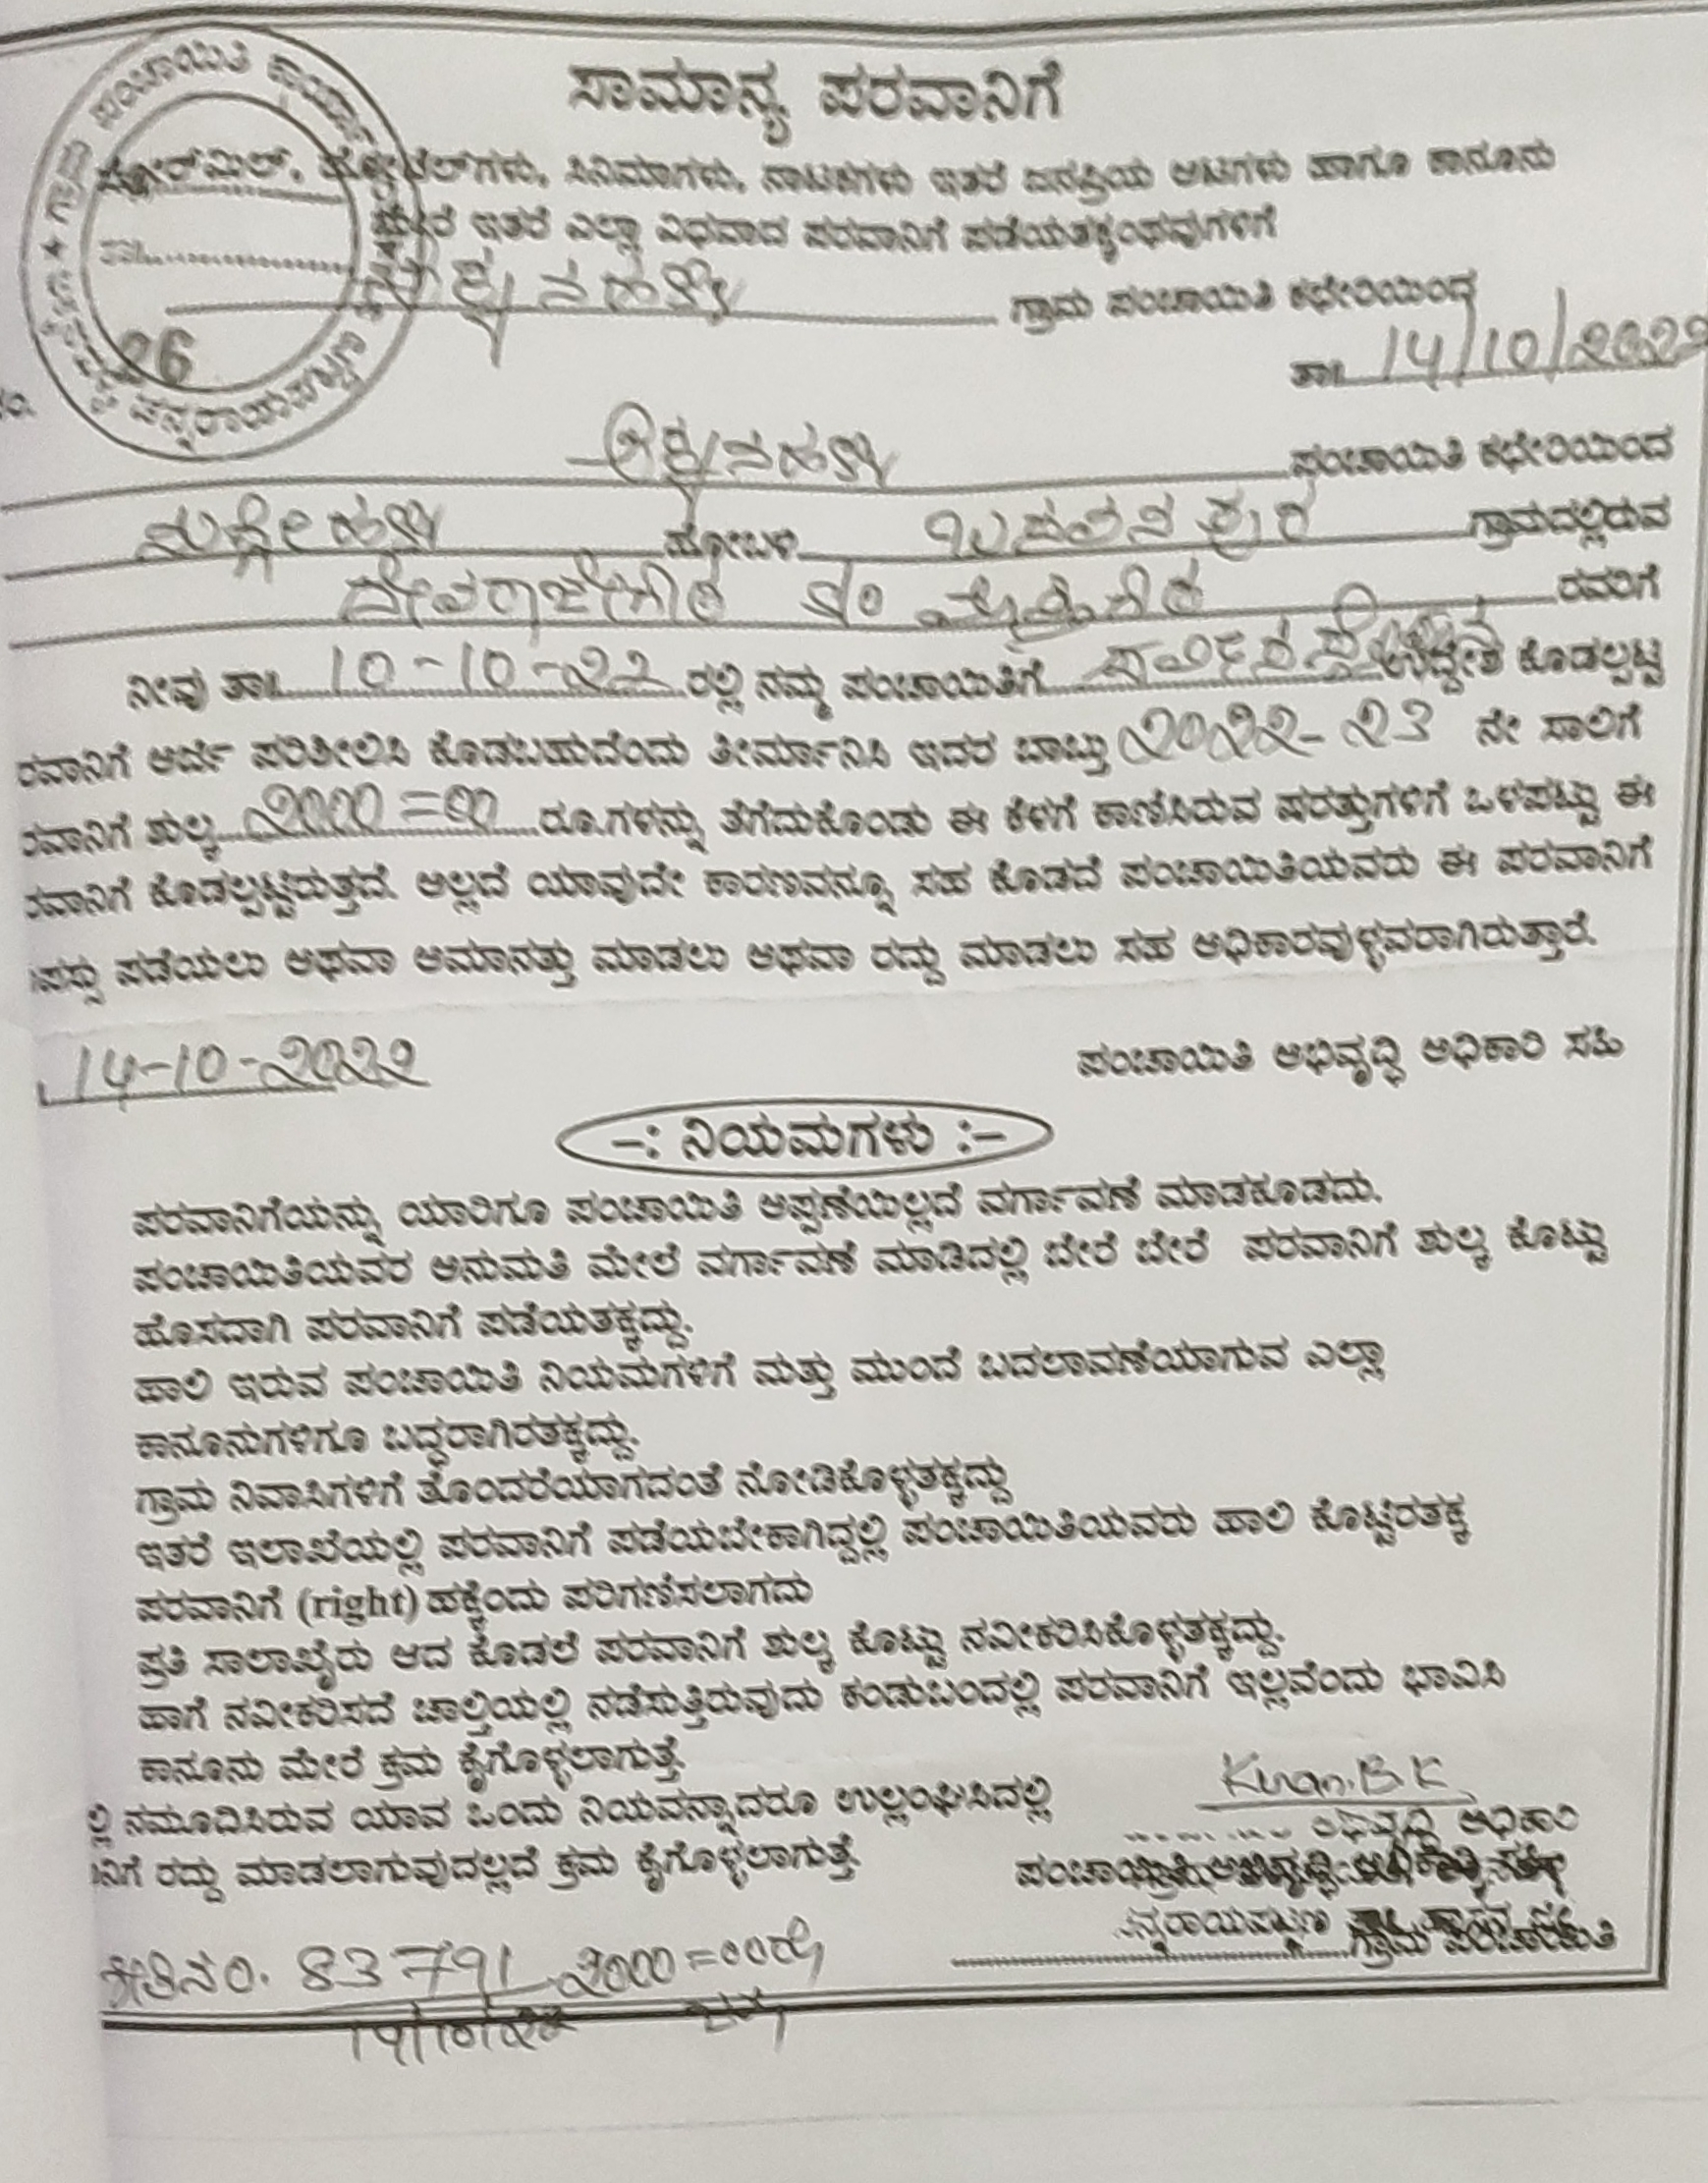 ಸಾಮಾನ್ಯ ಪರವಾನಿಗೆ
ಫ್ಲೋರ್‌ಮಿಲ್, ಹೋಟೆಲ್‌ಗಳು, ಸಿನಿಮಾಗಳು, ನಾಟಕಗಳು ಇತರೆ ಜನಪ್ರಿಯ ಆಟಗಳು ಹಾಗೂ ಕಾನೂನು
ಮೇರೆ ಇತರೆ ಎಲ್ಲಾ ವಿಧವಾದ ಪರವಾನಿಗೆ ಪಡೆಯತಕ್ಕಂಥವುಗಳಿಗೆ
ಗ್ರಾಮ ಪಂಚಾಯಿತಿ ಕಛೇರಿಯಿಂದ
26
ತಾ॥ 14/10/2022
ಪಂಚಾಯಿತಿ ಕಛೇರಿಯಿಂದ
ಹೋಬಳಿ ಬಸವನಪುರ ಗ್ರಾಮದಲ್ಲಿರುವ
ದೇವರಾಜೇಗೌಡ ರವರಿಗೆ
ನೀವು ತಾ॥ 10-10-22 ರಲ್ಲಿ ನಮ್ಮ ಪಂಚಾಯಿತಿಗೆ ಉದ್ದೇಶ ಕೊಡಲ್ಪಟ್ಟ
ರವಾನಿಗೆ ಅರ್ಜಿ ಪರಿಶೀಲಿಸಿ ಕೊಡಬಹುದೆಂದು ತೀರ್ಮಾನಿಸಿ ಇದರ ಬಾಬ್ತು 2022-23 ನೇ ಸಾಲಿಗೆ
ರವಾನಿಗೆ ಶುಲ್ಕ 2000=00 ರೂ.ಗಳನ್ನು ತೆಗೆದುಕೊಂಡು ಈ ಕೆಳಗೆ ಕಾಣಿಸಿರುವ ಷರತ್ತುಗಳಿಗೆ ಒಳಪಟ್ಟು ಈ
ರವಾನಿಗೆ ಕೊಡಲ್ಪಟ್ಟಿರುತ್ತದೆ. ಅಲ್ಲದೆ ಯಾವುದೇ ಕಾರಣವನ್ನೂ ಸಹ ಕೊಡದೆ ಪಂಚಾಯಿತಿಯವರು ಈ ಪರವಾನಿಗೆ
ಪಸ್ಸು ಪಡೆಯಲು ಅಥವಾ ಅಮಾನತ್ತು ಮಾಡಲು ಅಥವಾ ರದ್ದು ಮಾಡಲು ಸಹ ಅಧಿಕಾರವುಳ್ಳವರಾಗಿರುತ್ತಾರೆ.
14-10-2022
ಪಂಚಾಯಿತಿ ಅಭಿವೃದ್ಧಿ ಅಧಿಕಾರಿ ಸಹಿ
–: ನಿಯಮಗಳು :–
ಪರವಾನಿಗೆಯನ್ನು ಯಾರಿಗೂ ಪಂಚಾಯಿತಿ ಅಪ್ಪಣೆಯಿಲ್ಲದೆ ವರ್ಗಾವಣೆ ಮಾಡಕೂಡದು.
ಪಂಚಾಯಿತಿಯವರ ಅನುಮತಿ ಮೇಲೆ ವರ್ಗಾವಣೆ ಮಾಡಿದಲ್ಲಿ ಬೇರೆ ಬೇರೆ ಪರವಾನಿಗೆ ಶುಲ್ಕ ಕೊಟ್ಟು
ಹೊಸದಾಗಿ ಪರವಾನಿಗೆ ಪಡೆಯತಕ್ಕದ್ದು.
ಹಾಲಿ ಇರುವ ಪಂಚಾಯಿತಿ ನಿಯಮಗಳಿಗೆ ಮತ್ತು ಮುಂದೆ ಬದಲಾವಣೆಯಾಗುವ ಎಲ್ಲಾ
ಕಾನೂನುಗಳಿಗೂ ಬದ್ಧರಾಗಿರತಕ್ಕದ್ದು.
ಗ್ರಾಮ ನಿವಾಸಿಗಳಿಗೆ ತೊಂದರೆಯಾಗದಂತೆ ನೋಡಿಕೊಳ್ಳತಕ್ಕದ್ದು
ಇತರೆ ಇಲಾಖೆಯಲ್ಲಿ ಪರವಾನಿಗೆ ಪಡೆಯಬೇಕಾಗಿದ್ದಲ್ಲಿ ಪಂಚಾಯಿತಿಯವರು ಹಾಲಿ ಕೊಟ್ಟಿರತಕ್ಕ
ಪರವಾನಿಗೆ (right) ಹಕ್ಕೆಂದು ಪರಿಗಣಿಸಲಾಗದು
ಪ್ರತಿ ಸಾಲಾಖೈರು ಆದ ಕೊಡಲೆ ಪರವಾನಿಗೆ ಶುಲ್ಕ ಕೊಟ್ಟು ನವೀಕರಿಸಿಕೊಳ್ಳತಕ್ಕದ್ದು.
ಹಾಗೆ ನವೀಕರಿಸದೆ ಚಾಲ್ತಿಯಲ್ಲಿ ನಡೆಸುತ್ತಿರುವುದು ಕಂಡುಬಂದಲ್ಲಿ ಪರವಾನಿಗೆ ಇಲ್ಲವೆಂದು ಭಾವಿಸಿ
ಕಾನೂನು ಮೇರೆ ಕ್ರಮ ಕೈಗೊಳ್ಳಲಾಗುತ್ತೆ.
ಲ್ಲಿ ನಮೂದಿಸಿರುವ ಯಾವ ಒಂದು ನಿಯವನ್ನಾದರೂ ಉಲ್ಲಂಘಿಸಿದಲ್ಲಿ
ನಿಗೆ ರದ್ದು ಮಾಡಲಾಗುವುದಲ್ಲದೆ ಕ್ರಮ ಕೈಗೊಳ್ಳಲಾಗುತ್ತೆ.
ಅಭಿವೃದ್ಧಿ ಅಧಿಕಾರಿ
ಪಂಚಾಯಿತಿ ಅಭಿವೃದ್ಧಿ ಅಧಿಕಾರಿ ಸಹಿ
ಗ್ರಾಮ ಪಂಚಾಯಿತಿ
ರಶೀತಿ ನಂ. 83791 2000=00
14/10/22